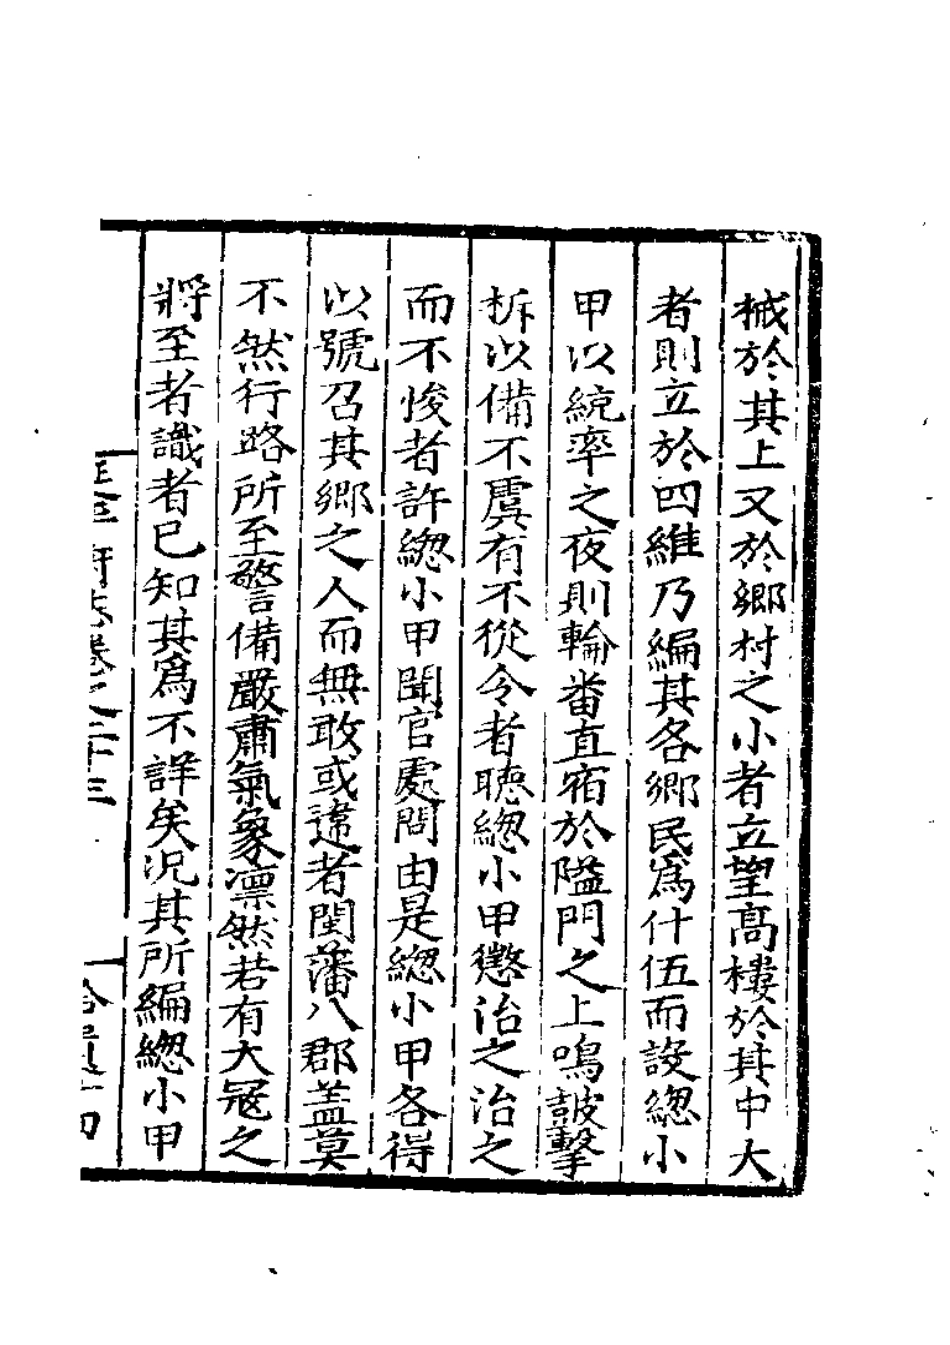 械於其上又於鄉村之小者立望高樓於其中大
者則立於四維乃編其各鄉民爲什伍而設緫小
甲以統率之夜則輪畨直宿於隘門之上鳴皷擊
柝以備不虞有不從令者聴緫小甲懲治之治之
而不悛者許緫小甲聞官處問由是緫小甲各得
以號召其鄉之人而無敢或違者閩藩八郡盖莫
不然行路所至警備嚴肅氣象凛然若有大冦之
將至者識者已知其爲不詳矣况其所編緫小甲
卷之二十三